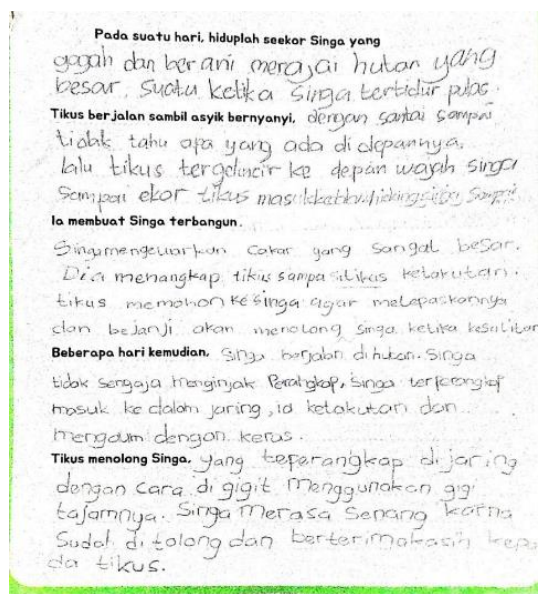 Pada suatu hari, hiduplah seekor Singa yang
gagah dan berani merajai hutan yang
besar. Suatu ketika Singa tertidur pulas.
Tikus berjalan sambil asyik bernyanyi, dengan santai sampai
tidak tahu apa yang ada di depannya.
lalu tikus tergelincir ke depan wajah singa
sampai ekor tikus masuk hidung singa sampai
Ia membuat Singa terbangun.
Singa mengeluarkan cakar yang sangat besar.
Dia menangkap tikus sampai si tikus ketakutan.
tikus memohon ke singa agar melepaskannya
dan bejanji akan menolong singa ketika kesulitan
Beberapa hari kemudian, singa berjalan di hutan. Singa
tidak sengaja menginjak Perangkap, Singa terperangkap
masuk ke dalam jaring, ia ketakutan dan
mengaum dengan keras.
Tikus menolong Singa, yang teperangkap di jaring
dengan cara di gigit menggunakan gigi
tajamnya. Singa merasa senang karna
Sudah di tolong dan berterimakasih kepa
da tikus.